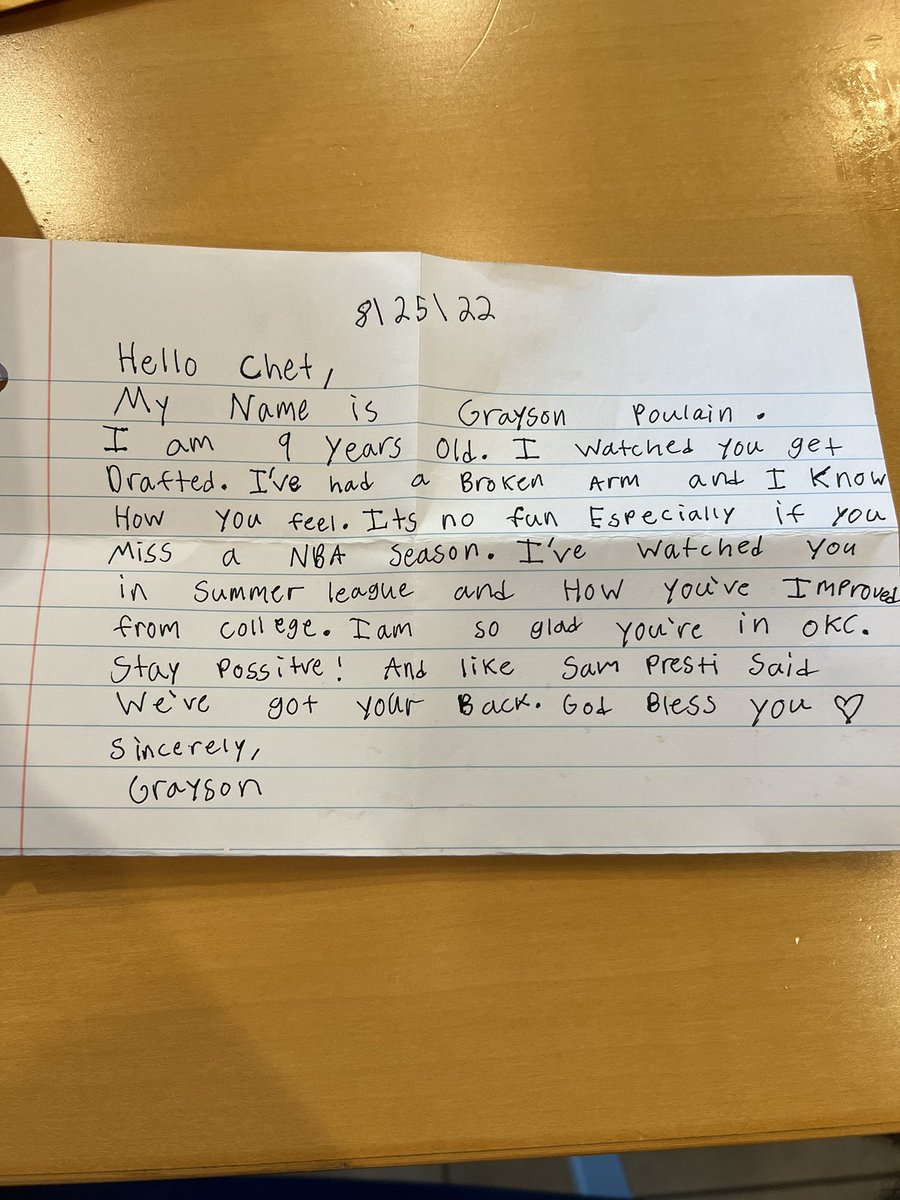 8\25\22
Hello Chet,
My Name is Grayson Poulain.
I am 9 years old. I watched you get
Drafted. I've had a Broken Arm and I Know
How you feel. Its no fun Especially if you
Miss a NBA season. I've watched you
in Summer league and How you've Improved
from college. I am so glad you're in OKC.
Stay Possitve! And like Sam Presti Said
We've got your Back. God Bless you ♡
Sincerely,
Grayson